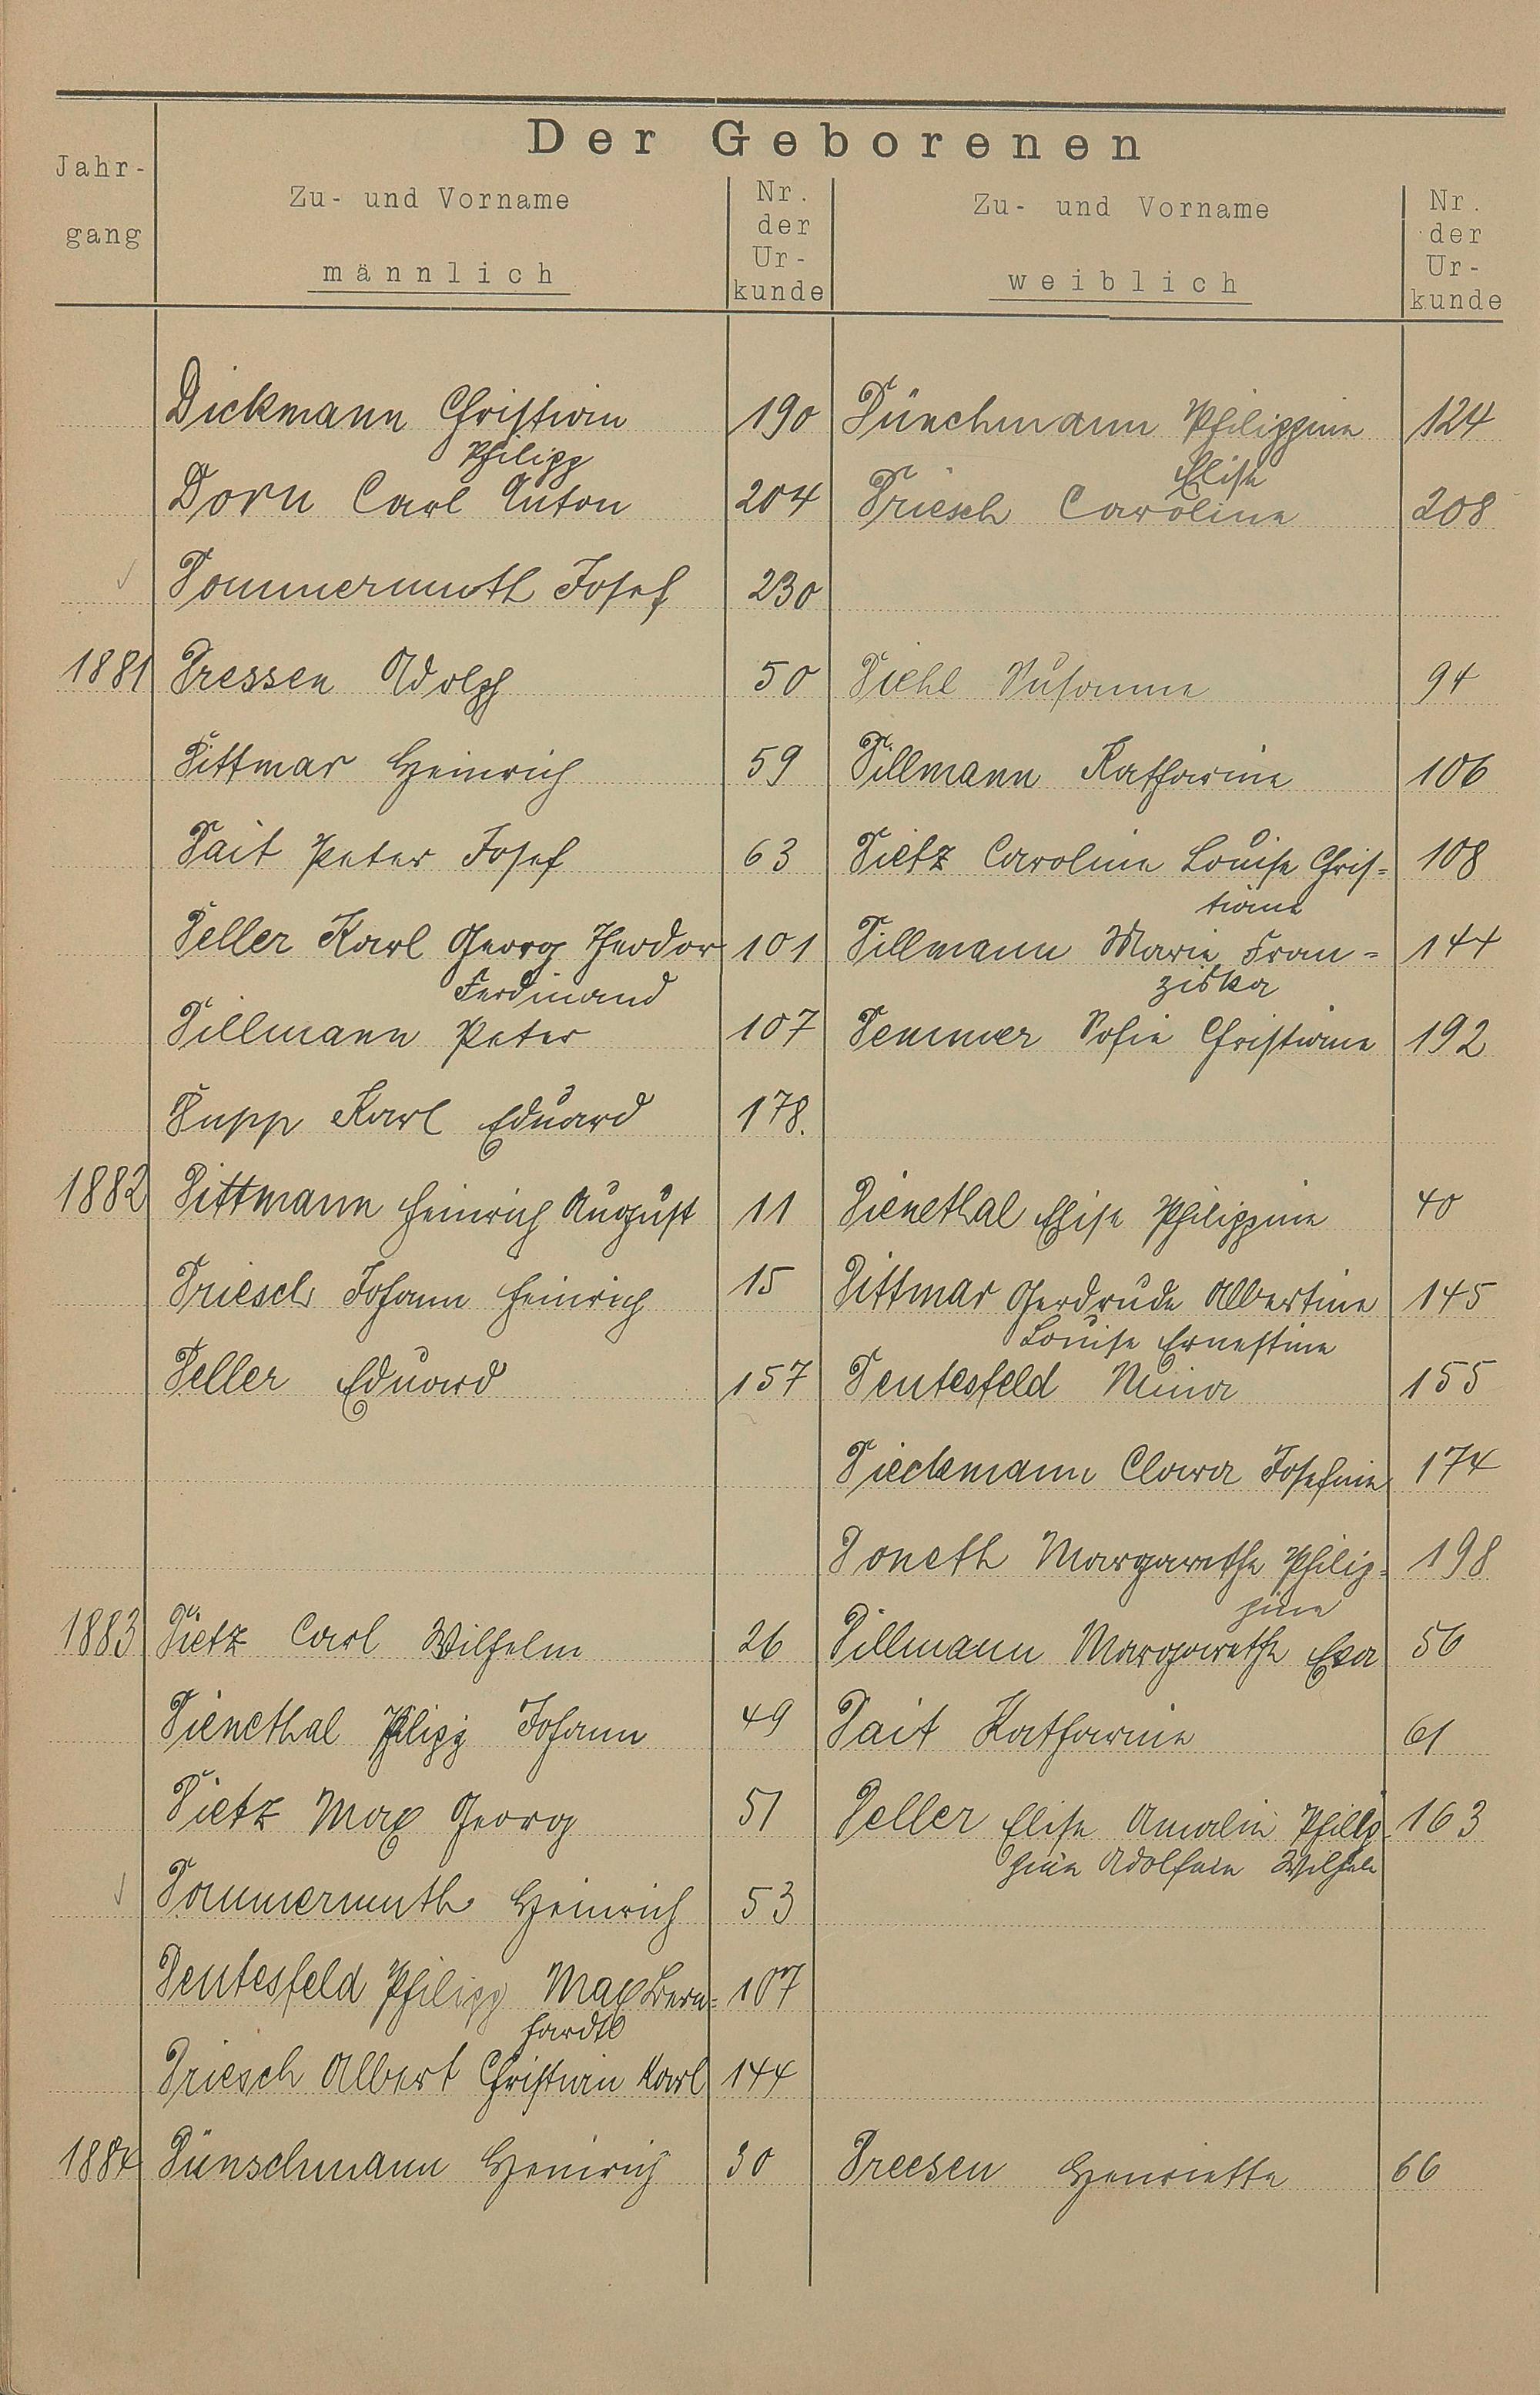 Der Geborenen
Jahr-
gang
Zu- und Vorname
männlich
Nr.
der
Ur-
kunde
Zu- und Vorname
weiblich
Nr.
der
Ur-
kunde
Dickmann Christian 190 Dünchmann Philippine 124
Philipp Elise
Dorn Carl Anton 204 Driesch Caroline 208
Dommermuth Josef 230
1881 Dressen Adolph 50 Diehl Susanna 94
Dittmar Heinrich 59 Dillmann Katharine 106
Dait Peter Josef 63 Dietz Caroline Louise Chris= 108
tiane
Deller Karl Georg Theodor 101 Dillmann Marie Fran= 144
Ferdinand ziska
Dillmann Peter 107 Demmer Sofie Christiane 192
Dupp Karl Eduard 178.
1882 Dittmann Heinrich August 11 Dienethal Elise Philippine 40
Driesch Johann Heinrich 15 Dittmar Gerdrude Albertine 145
Louise Ernestine
Deller Eduard 157 Dentesfeld Mina 155
Dieckmann Clara Josefine 174
Doneth Margarethe Philip= 198
pine
1883 Dietz Carl Wilhelm 26 Dillmann Margarethe Eva 56
Dienethal Philipp Johann 49 Dait Katharine 61
Dietz Max Georg 51 Deller Elise Amalie Philip= 163
pine Adolfine Wilhele
Dommermuth Heinrich 53
Dentesfeld Philipp Max Bern= 107
hardt
Driesch Albert Christian Karl 144
1884 Dünschmann Heinrich 30 Dreesen Henriette 66